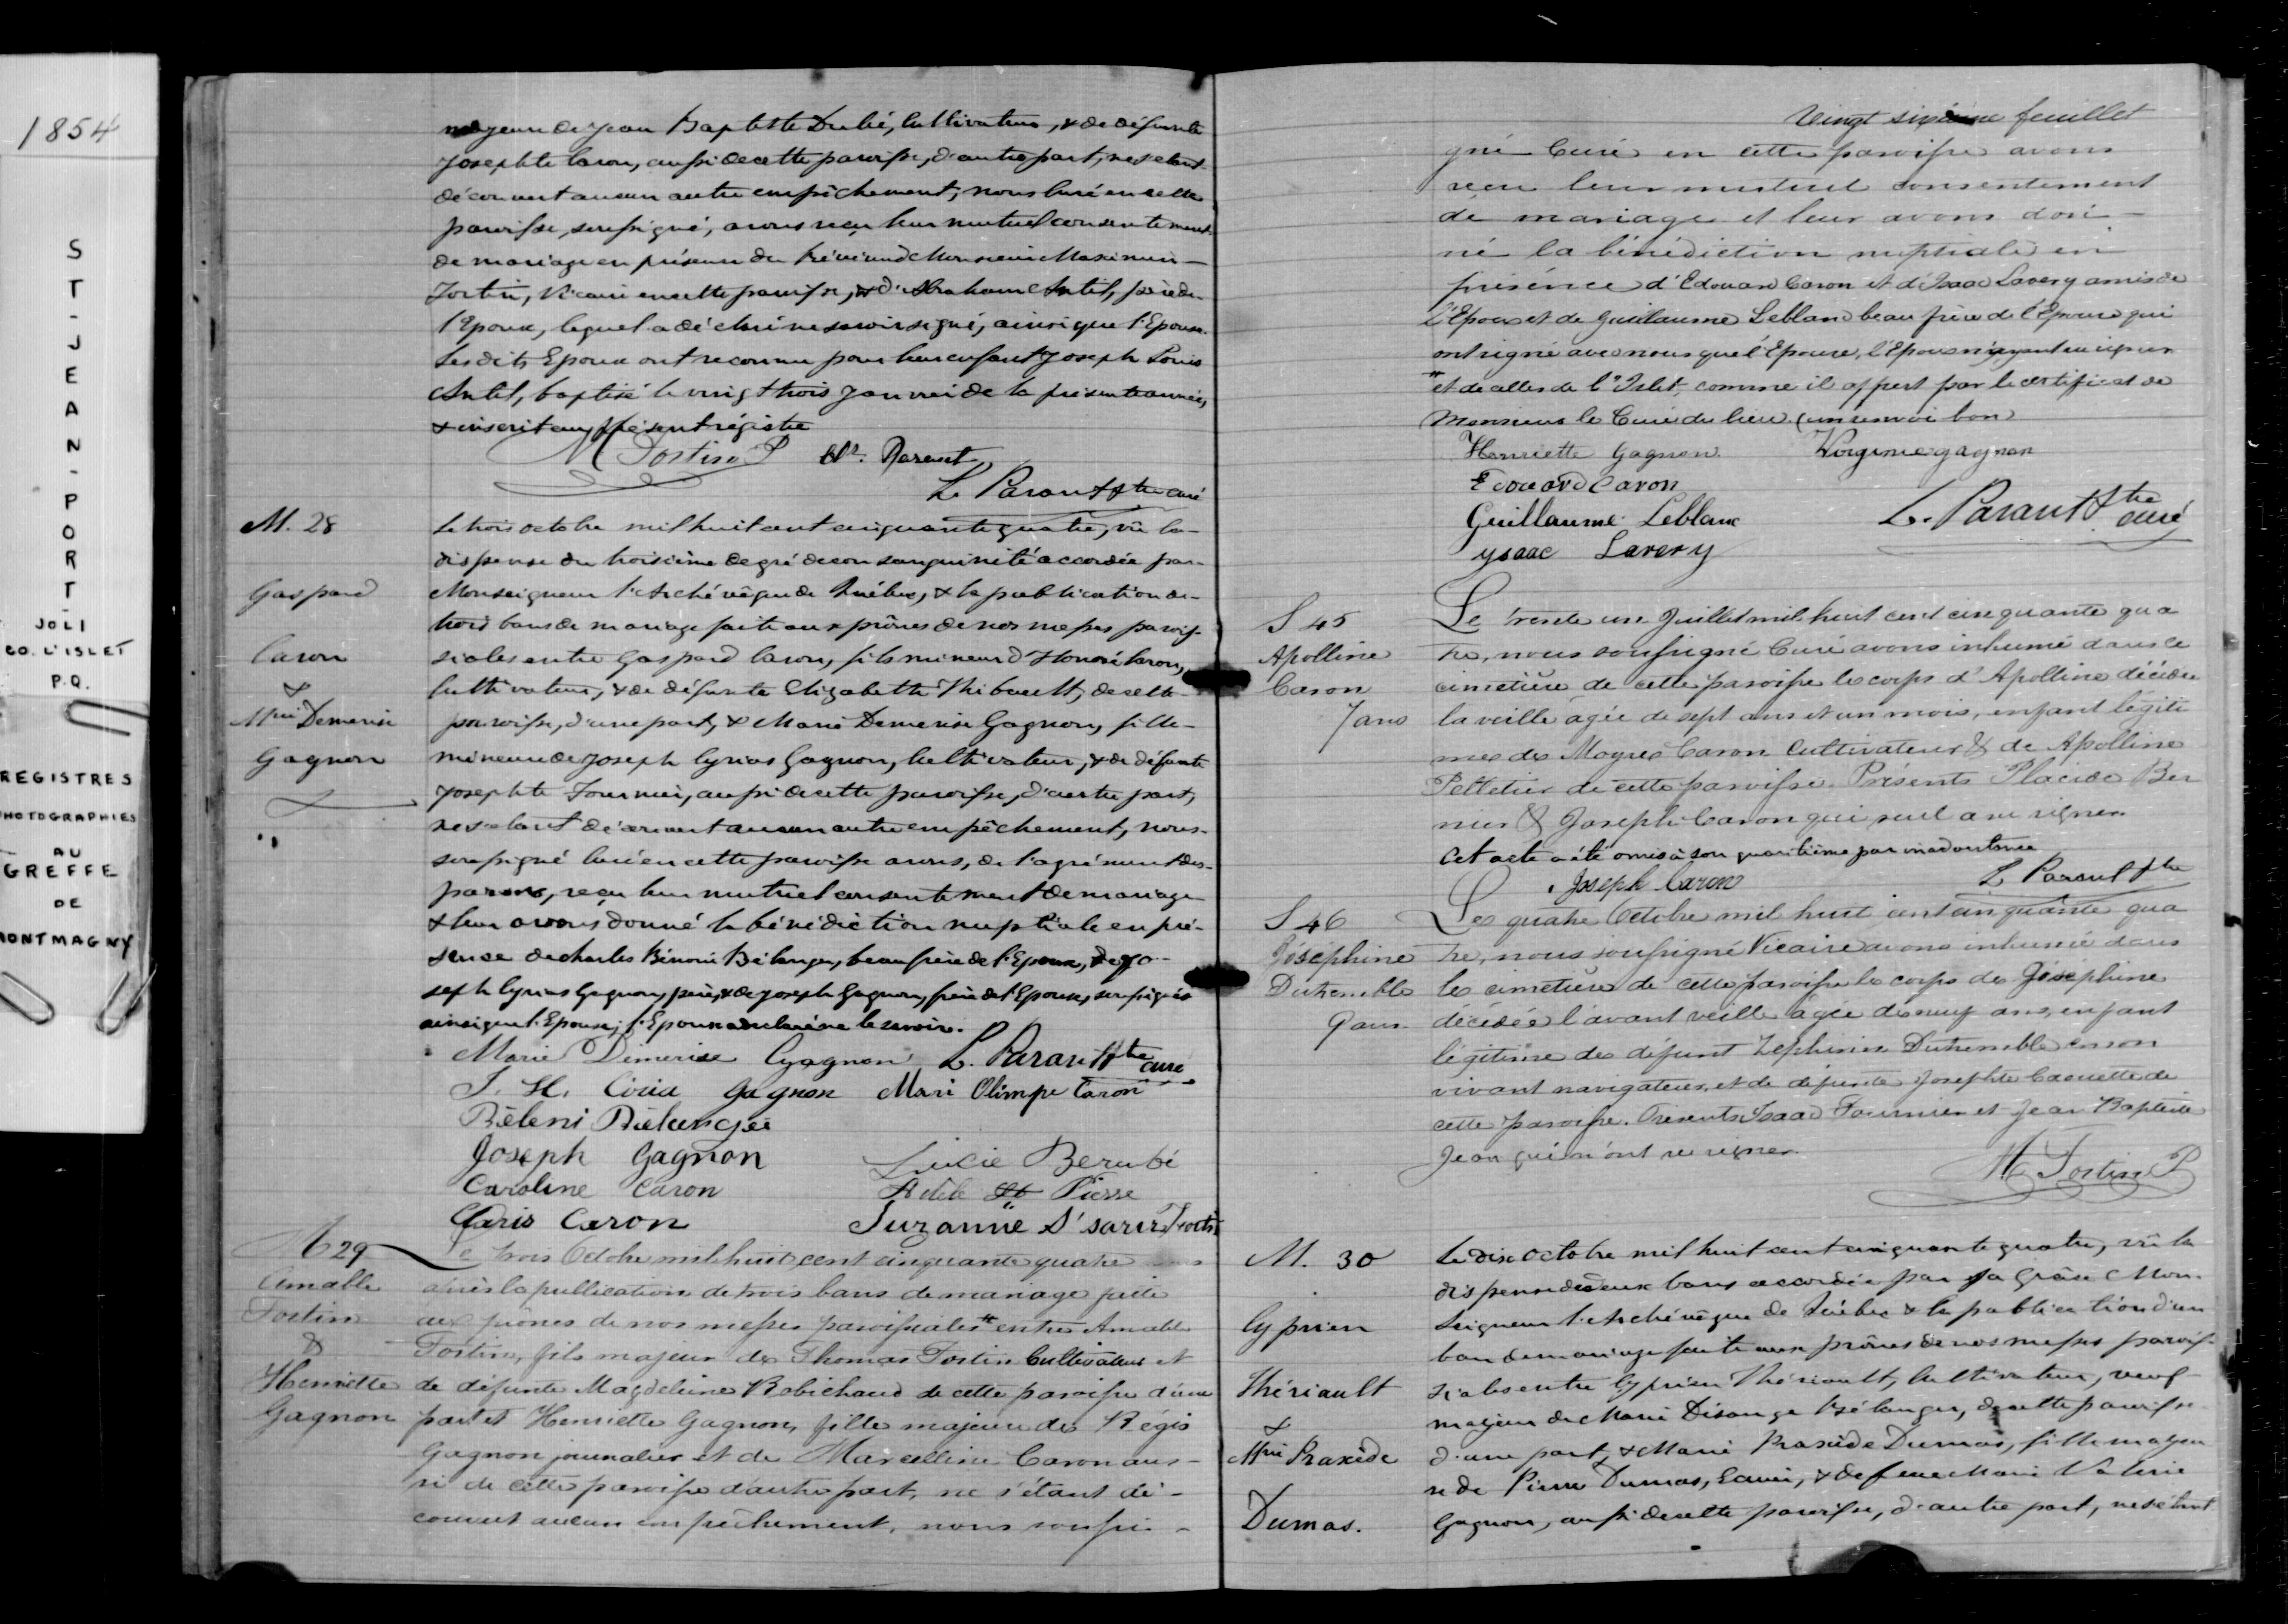 1854
S
T
-
J
E
A
N
-
P
O
R
T
-
JOLI
CO. L'ISLET
P.Q.
REGISTRES
PHOTOGRAPHIES
AU
GREFFE
DE
MONTMAGNY
majeure de Jean Baptiste Dubé, Cultivateur, & de défunte
Josephte Caron, aussi de cette paroisse, d'autre part; ne s'étant
découvert aucun autre empêchement, nous Curé en cette
paroisse, soussigné, avons reçu leur mutuel consentement
de mariage en présence du Révérend Monsieur Maximin
Fortin, Vicaire en cette paroisse, & d'Abraham Antil, père de
l'Epoux, lequel a déclaré ne savoir signer, ainsi que l'Epouse.
Lesdits Epoux ont reconnu pour leur enfant Joseph Louis
Antil, baptisé le vingt trois Janvier de la présente année,
& inscrit au présent régistre
M Fortin P Parent
L. Parant Ptre curé
M. 28
Gaspard
Caron
&
Mrie Demerise
Gagnon
Le trois octobre mil huit cent cinquante quatre, vû la
dispense du troisième degré de consanguinité accordée par
Monseigneur l'Archévêque de Québec, & la publication de
trois bans de mariage faite aux prônes de nos messes parois-
siales entre Gaspard Caron, fils mineur d'Honoré Caron,
Cultivateur, & de défunte Elizabeth Thibault, de cette
paroisse, d'une part, & Marie Demerise Gagnon, fille
mineure de Joseph Cyrias Gagnon, Cultivateur, & de défunte
Josephte Fournier, aussi de cette paroisse, d'autre part,
ne s'étant découvert aucun autre empêchement, nous
soussigné Curé en cette paroisse avons, de l'agrément des
parens, reçu leur mutuel consentement de mariage
& leur avons donné la bénédiction nuptiale en pré-
sence de Charles Bénoni Bélanger, beaufrère de l'Epoux, de Jo-
seph Cyrias Gagnon, père, & de Joseph Gagnon, frère de l'Epouse, soussignés
ainsi que l'Epouse; l'Epoux a declaré ne le savoir.
Marie Dimerise Gagnon L. Parant Ptre curé
J. H. Ciria Gagnon Mari Olimpe Caron
Béloni Bélanger
Joseph Gagnon Lucie Berubé
Caroline Caron Adele St Pierre
Caron Suzanne
M 29
Amable
Fortin
&
Henriette
Gagnon
Le trois Octobre mil huit cent cinquante quatre
après la publication de trois bans de mariage faite
aux prônes de nos messes paroissiales # entre Amable
Fortin, fils majeur de Thomas Fortin Cultivateur et
de défunte Magdeleine Robichaud de cette paroisse d'une
part et Henriette Gagnon, fille majeure de Régis
Gagnon journalier et de Marcelline Caron aus-
si de cette paroisse d'autre part, ne s'étant dé-
couvert aucun empêchement, nous soussi-
Vingt sixième feuillet
gné Curé en cette paroisse avons
reçu leur mutuel consentement
de mariage et leur avons don-
né la bénédiction nuptiale en
présence d'Edouard Caron et d'Isaac Lavery amis de
l'Epoux et de Guillaume Leblanc beau frère de l'Epouse qui
ont signé avec nous que l'Epouse, l'Epoux n'ayant su signer
# et de celles de l'Islet, comme il appert par le certificat de
Monsieur le Curé du lieu. (un renvoi bon)
Henriette Gagnon. Virginie gagnon
Edouard Caron
Guillaume Leblanc L. Parant Ptre curé
ysaac Lavery
S 45
Apolline
Caron
7 ans
Le trente un Juillet mil huit cent cinquante qua
tre, nous soussigné Curé avons inhumé dans le
cimetière de cette paroisse le corps d'Apolline décédée
la veille âgée de sept ans et un mois, enfant légiti
me de Magnes Caron Cultivateur & de Apolline
Pelletier de cette paroisse. Présents Placide Ber
nier & Joseph Caron qui seul a su signer.
Cet acte a été omis à son quantième par inadvertance
Joseph Caron L Parant Ptre
S 46
Joséphine
Dutremble
9 ans
Le quatre Octobre mil huit cent cinquante qua
tre, nous soussigné Vicaire avons inhumé dans
le cimetière de cette paroisse le corps de Joséphine
décédée l'avant veille âgée de neuf ans, enfant
légitime de défunt Zephirin Dutremble en son
vivant navigateur, et de défunte Josephte Caouette de
cette paroisse. Présents Isaac Fournier et Jean Baptiste
Jean qui n'ont su signer.
M Fortin P
M. 30
Cyprien
Thériault
&
Mrie Praxède
Dumas.
Le dix octobre mil huit cent cinquante quatre, vû la
dispense de deux bans accordée par Sa Grâce Mon-
seigneur l'Archévêque de Québec & la publication d'un
ban de mariage faite aux prônes de nos messes parois-
siales entre Cyprien Thériault, Cultivateur, veuf
majeur de Marie Désange Bélanger, de cette paroisse
d'une part, & Marie Praxède Dumas, fille majeu
re de Pierre Dumas, Ecuier, & de feue Marie Valerie
Gagnon, aussi de cette paroisse, d'autre part, ne s'étant